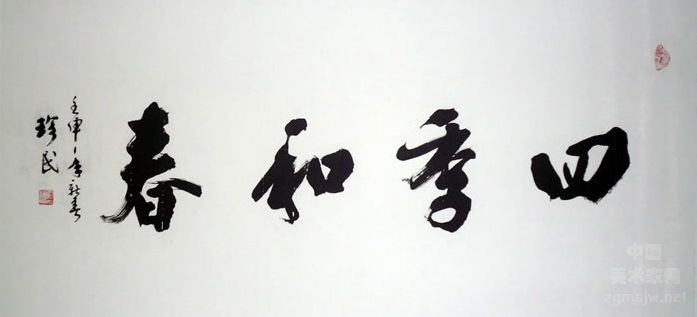 四季和春
壬申年新春
珍民
中国
美术家网
zgmsjw.net